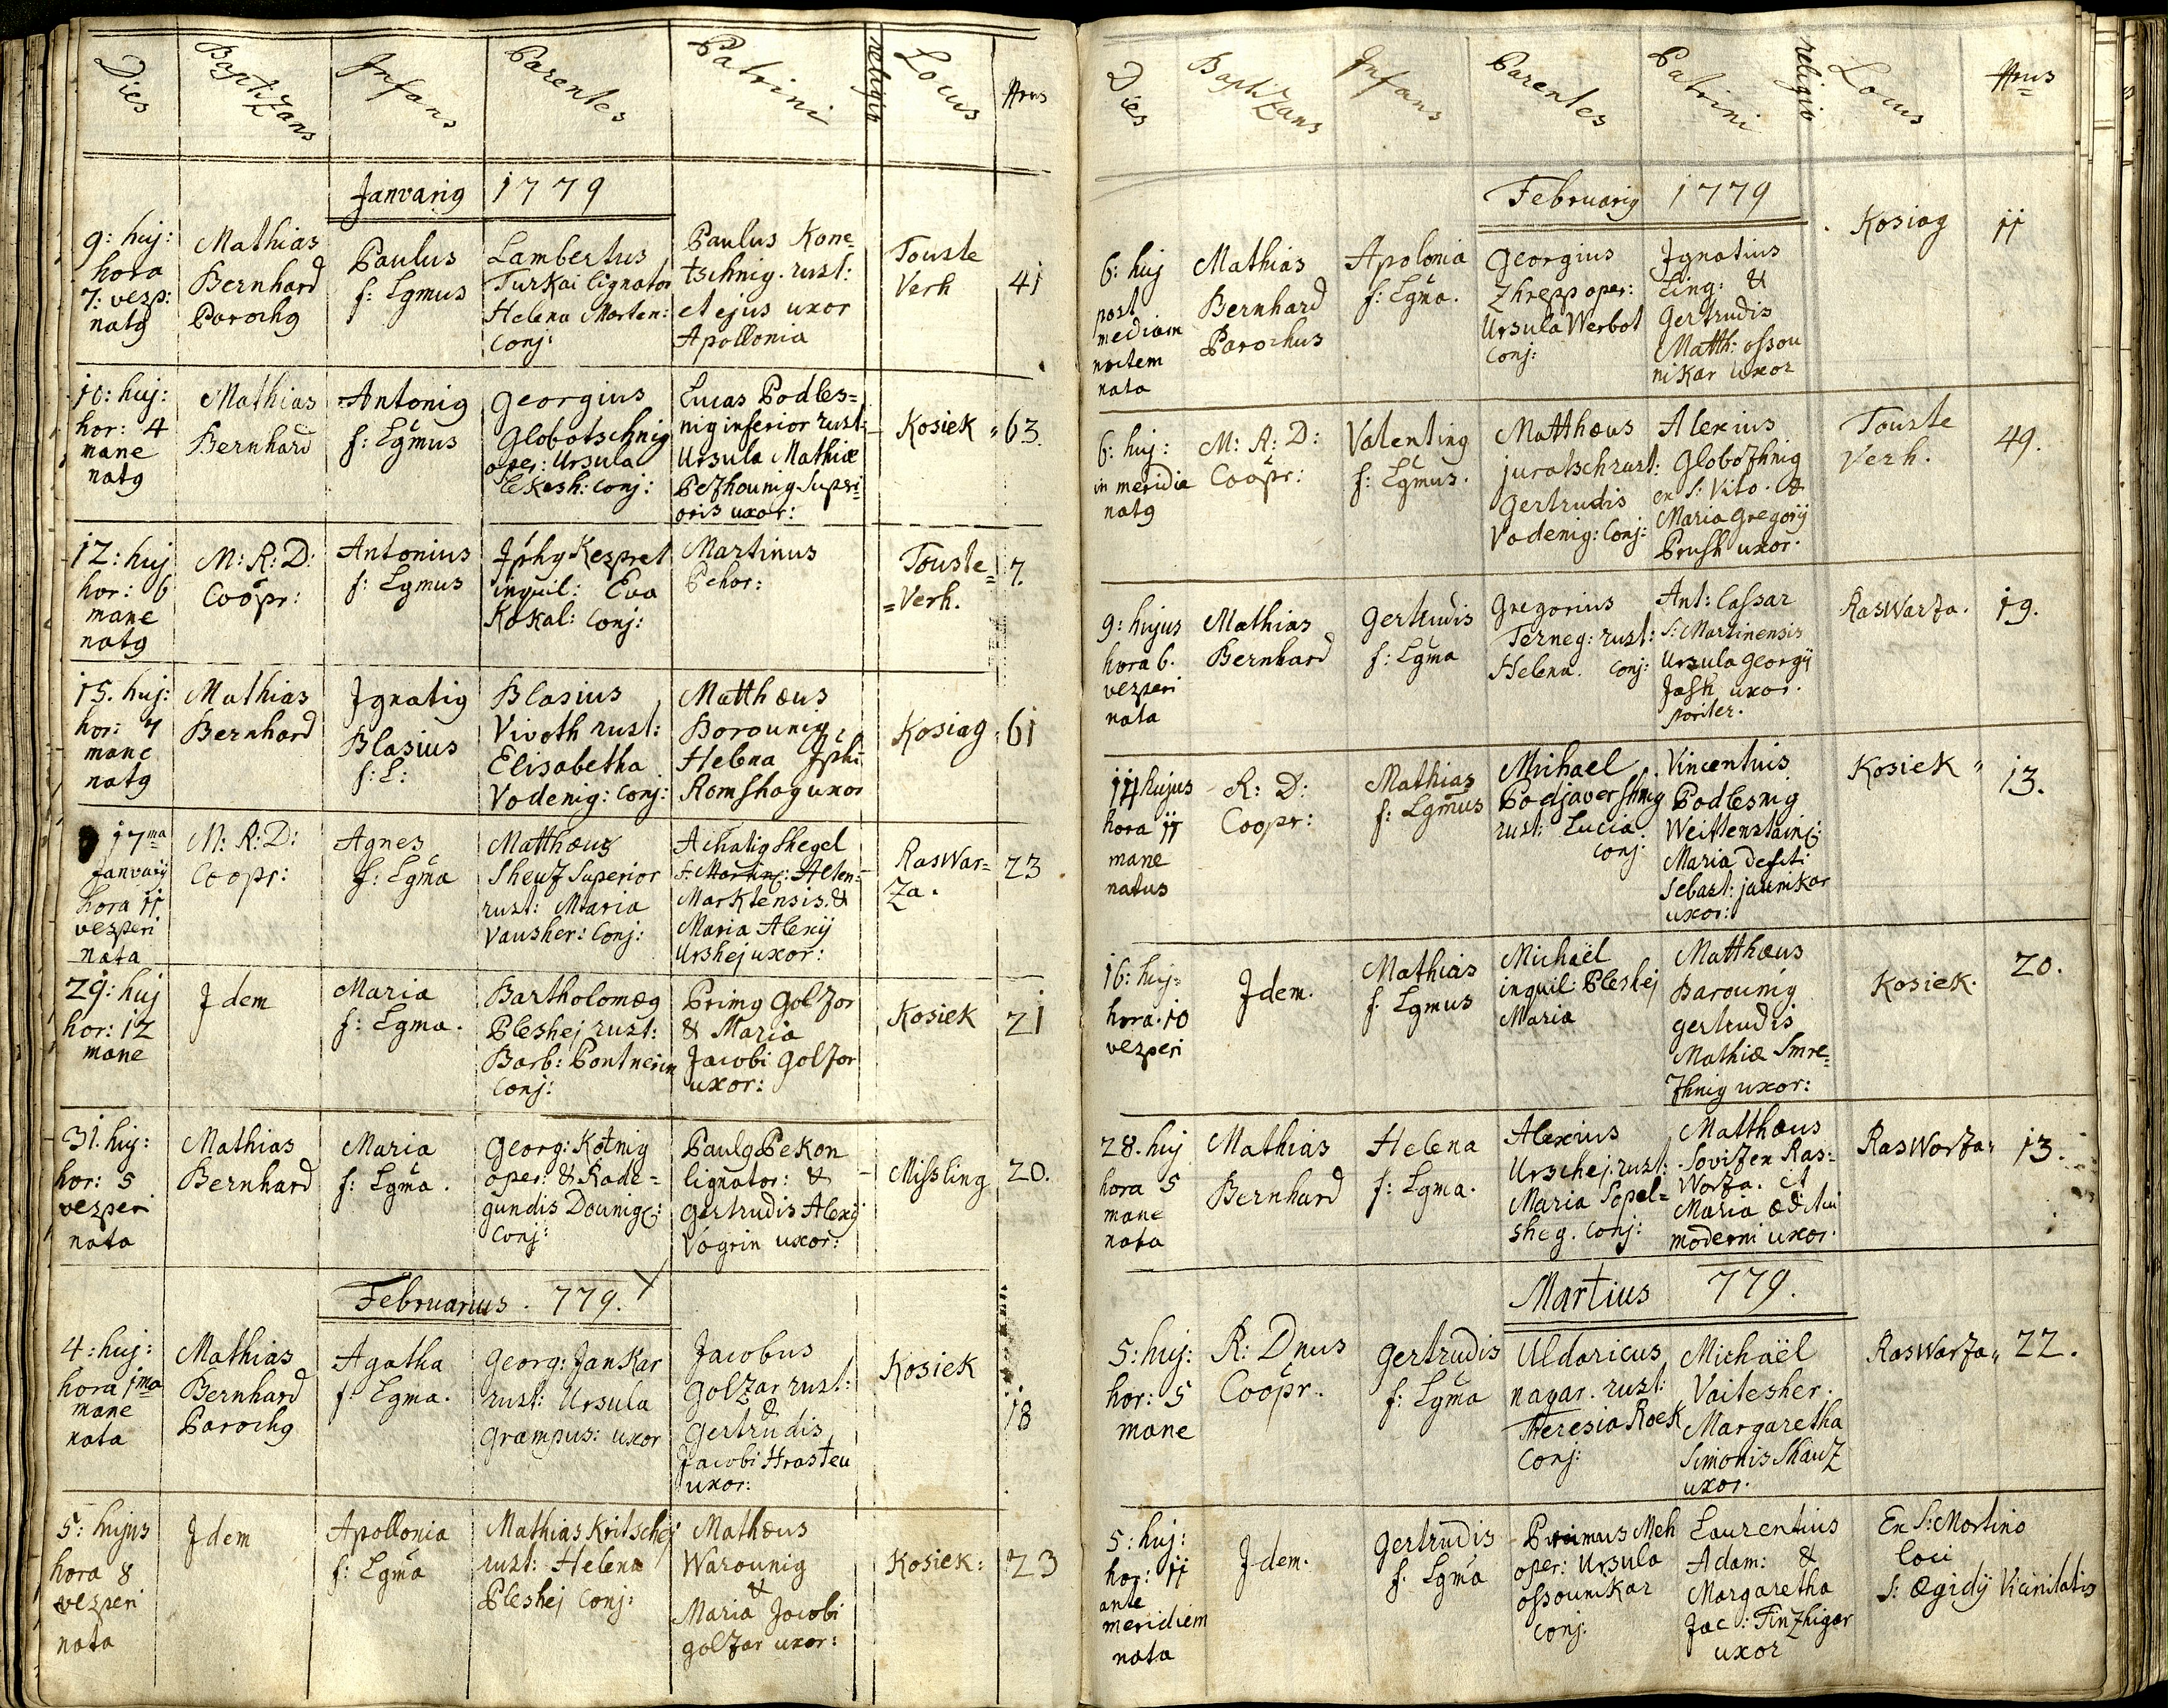 Dies
Baptizans
Infans
Parentes
Patrini
religio
Locus
Nrus
Januarig 1779
9: huj:
hora
7: vesp:
natg
Mathias
Bernhard
Parochg
Paulus
f: Lgmus
Lambertus
Turkai lignator
Helena Morten:
Conj:
Paulus Kone=
tschnig. rust:
et ejus uxor
Apollonia
Touste
Verh
41
10: huj:
hor: 4
mane
natg
Mathias
Bernhard
Antonig
f: Lgmus
Georgius
Globotschnig
oper: Ursula
Lekosh: Conj:
Lucas Podles=
nig inferior rust:
Ursula Mathiæ
Peshounig Superi=
oris uxor:
Kosiek
63.
12: huj
hor: 6
mane
natg
M: R: D:
Coopr:
Antonius
f: Lgmus
Jphg Kespret
inquil: Eva
Kokal: Conj:
Martinus
Pehor:
Touste=
=Verh.
7.
15. huj:
hor: 7
mane
natg
Mathias
Bernhard
Ignatig
Blasius
f: L:
Blasius
Vivoth rust:
Elisabetha
Vodenig: Conj:
Matthæus
Borounig
Helena Jphi
Romshag uxor
Kosiag
61
17ma
Januarij
hora 11
vesperi
nata
M: R: D:
Coopr:
Agnes
f: Lgma
Matthæus
Sheuz Superior
rust: Maria
Vausher: Conj:
Achatig Shegel
S: Martin: Alten=
Marktensis. &
Maria Alexij
Urshej uxor:
RasWar=
za.
23
29: huj
hor: 12
mane
Idem
Maria
f: Lgma.
Bartholomæg
Pleshej rust:
Barb: Pontnerin
Conj:
Primg Golzor
& Maria
Jacobi Golzor
uxor:
Kosiek
21
31. huj:
hor: 5
vesperi
nata
Mathias
Bernhard
Maria
f: Lgma.
Georg: Kotnig
oper: & Rade=
gundis Dounig:
Conj:
Paulg Pekon
lignator: &
Gertrudis Alexij
Vogrin uxor:
Missling
20.
Februarius . 779.
4: huj:
hora 1ma
mane
nata
Mathias
Bernhard
Parochg
Agatha
f: Lgma.
Georg: Jankar
rust: Ursula
Grampus: uxor
Jacobus
Golzar rust:
&
Gertrudis
Jacobi Hrasteu
uxor:
Kosiek
18
5: hujus
hora 8
vesperi
nata
Idem
Apollonia
f: Lgma
Mathias Kritschej
rust: Helena
Pleshej Conj:
Mathæus
Warounig
&
Maria Jacobi
golzar uxor:
Kosiek:
23
Dies
Baptizans
Infans
Parentes
Patrini
religio
Locus
Nrus
Februarig 1779
6: huj
post
mediam
noctem
nata
Mathias
Bernhard
Parochus
Apolonia
f: Lgma.
Georgius
Zhrepp oper:
Ursula Werbot
Conj:
Ignatius
Ling: &
Gertrudis
Matth: ossou
nikar uxor
Kosiag
11
6: huj:
in meridie
natg
M: R: D:
Coopr:
Valenting
f: Lgmus.
Matthæus
juratsch rust:
Gertrudis
Vodenig: Conj:
Alexius
Globozhnig
ex S: Vito. &
Maria Gregorij
Prush uxor.
Touste
Verh.
49.
9: hujus
hora 6.
vesperi
nata
Mathias
Bernhard
Gertrudis
f: Lgma
Gregorius
Terneg: rust:
Helena. Conj:
Ant: Cassar
S: Martinensis
Ursula Georgij
Jash uxor.
pariter.
RasWarza.
19.
14 hujus
hora 11
mane
natus
R: D:
Coopr:
Mathias
f: Lgmus
Michael
Podjavershnig
rust: Lucia
Conj:
Vincentius
Podlesnig
Weittenstain:
Maria defcti
Sebast: jaunikar
uxor:
Kosiek
13.
16: huj:
hora 10
vesperi
Idem.
Mathias
f. Lgmus
Michaël
inquil: Pleshej
Maria
Matthæus
Barounig
gertrudis
Mathiæ Smre=
zhnig uxor:
Kosiek.
20.
28. huj
hora 5
mane
nata
Mathias
Bernhard
Helena
f: Lgma.
Alexius
Urschej. rust:
Maria Sopel=
sheg. Conj:
Matthæus
Sovizen Ras=
Worza. et
Maria æditui
moderni uxor.
RasWorza
13.
Martius 779.
5: huj:
hor: 5
mane
R: Dnus
Coopr:
Gertrudis
f: Lgma
Uldaricus
nagar. rust:
Theresia Roek
Conj:
Michaël
Vaitesher.
Margaretha
Simonis Shauz
uxor.
RasWarza
22.
5: huj:
hor: 11
ante
meridiem
nata
Idem.
Gertrudis
f. Lgma
Primus Meh
oper: Ursula
ossounikar
Conj:
Laurentius
Adam: &
Margaretha
Jac: Finzhigar
uxor
Ex S: Martino
loci
S: Ægidij Vicinitatis